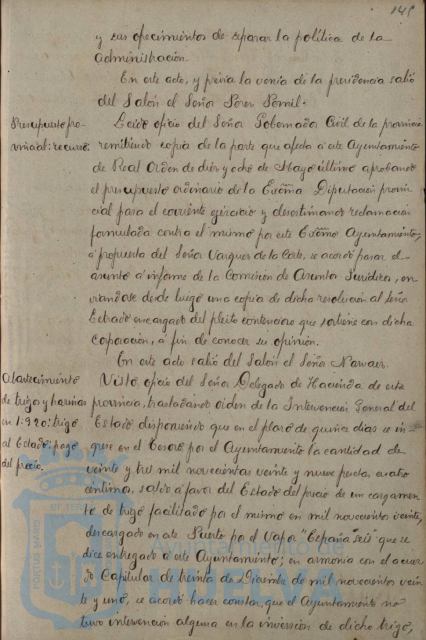 145
y sus ofrecimientos de separar la política de la
administración.
En este acto, y previa la venia de la presidencia salió
del Salón el Señor Pérez
Presupuesto pro-
vincial: recurso.
Leido oficio del Señor Gobernador Civil de la provincia
remitiendo copia de la parte que afecta á este Ayuntamiento
de Real Orden de diez y ocho de Mayo último aprobando
el presupuesto ordinario de la Excma Diputación provin-
cial para el corriente ejercicio y desestimando reclamación
formulada contra el mismo por este Excmo Ayuntamiento,
á propuesta del Señor Vazquez de la Corte, se acordó pasar el
asunto á informe de la Comisión de Asuntos Jurídicos, en-
viandose desde luego una copia de dicha resolución al Señor
Letrado encargado del pleito contencioso que sostiene con dicha
Coporación, á fin de conocer su opinión.
En este acto salió del Salón el Señor Narvaez.
Abastecimiento
de trigo y harinas
en 1.920: trigo
al Estado: pago
del precio.
Visto oficio del Señor Delegado de Hacienda de esta
provincia, trasladando orden de la Intervención General del
Estado disponiendo que en el plazo de quince dias se in-
grese en el Tesoro por el Ayuntamiento la cantidad de
veinte y tres mil novecientas veinte y nueve pesetas, cuatro
centimos, saldo á favor del Estado del precio de un cargamen-
to de trigo facilitado por el mismo en mil novecientos veinte,
descargado en este Puerto por el vapor "España seis" que se
dice entregado á este Ayuntamiento; en armonia con el acuer-
do Capitular de treinta de Diciembre de mil novecientos vein-
te y uno, se acordó hacer constar, que el Ayuntamiento no
tuvo intervención alguna en la inversión de dicho trigo,
PORTUS MARIS ET TERRAE
Ayuntamiento de
HUELVA